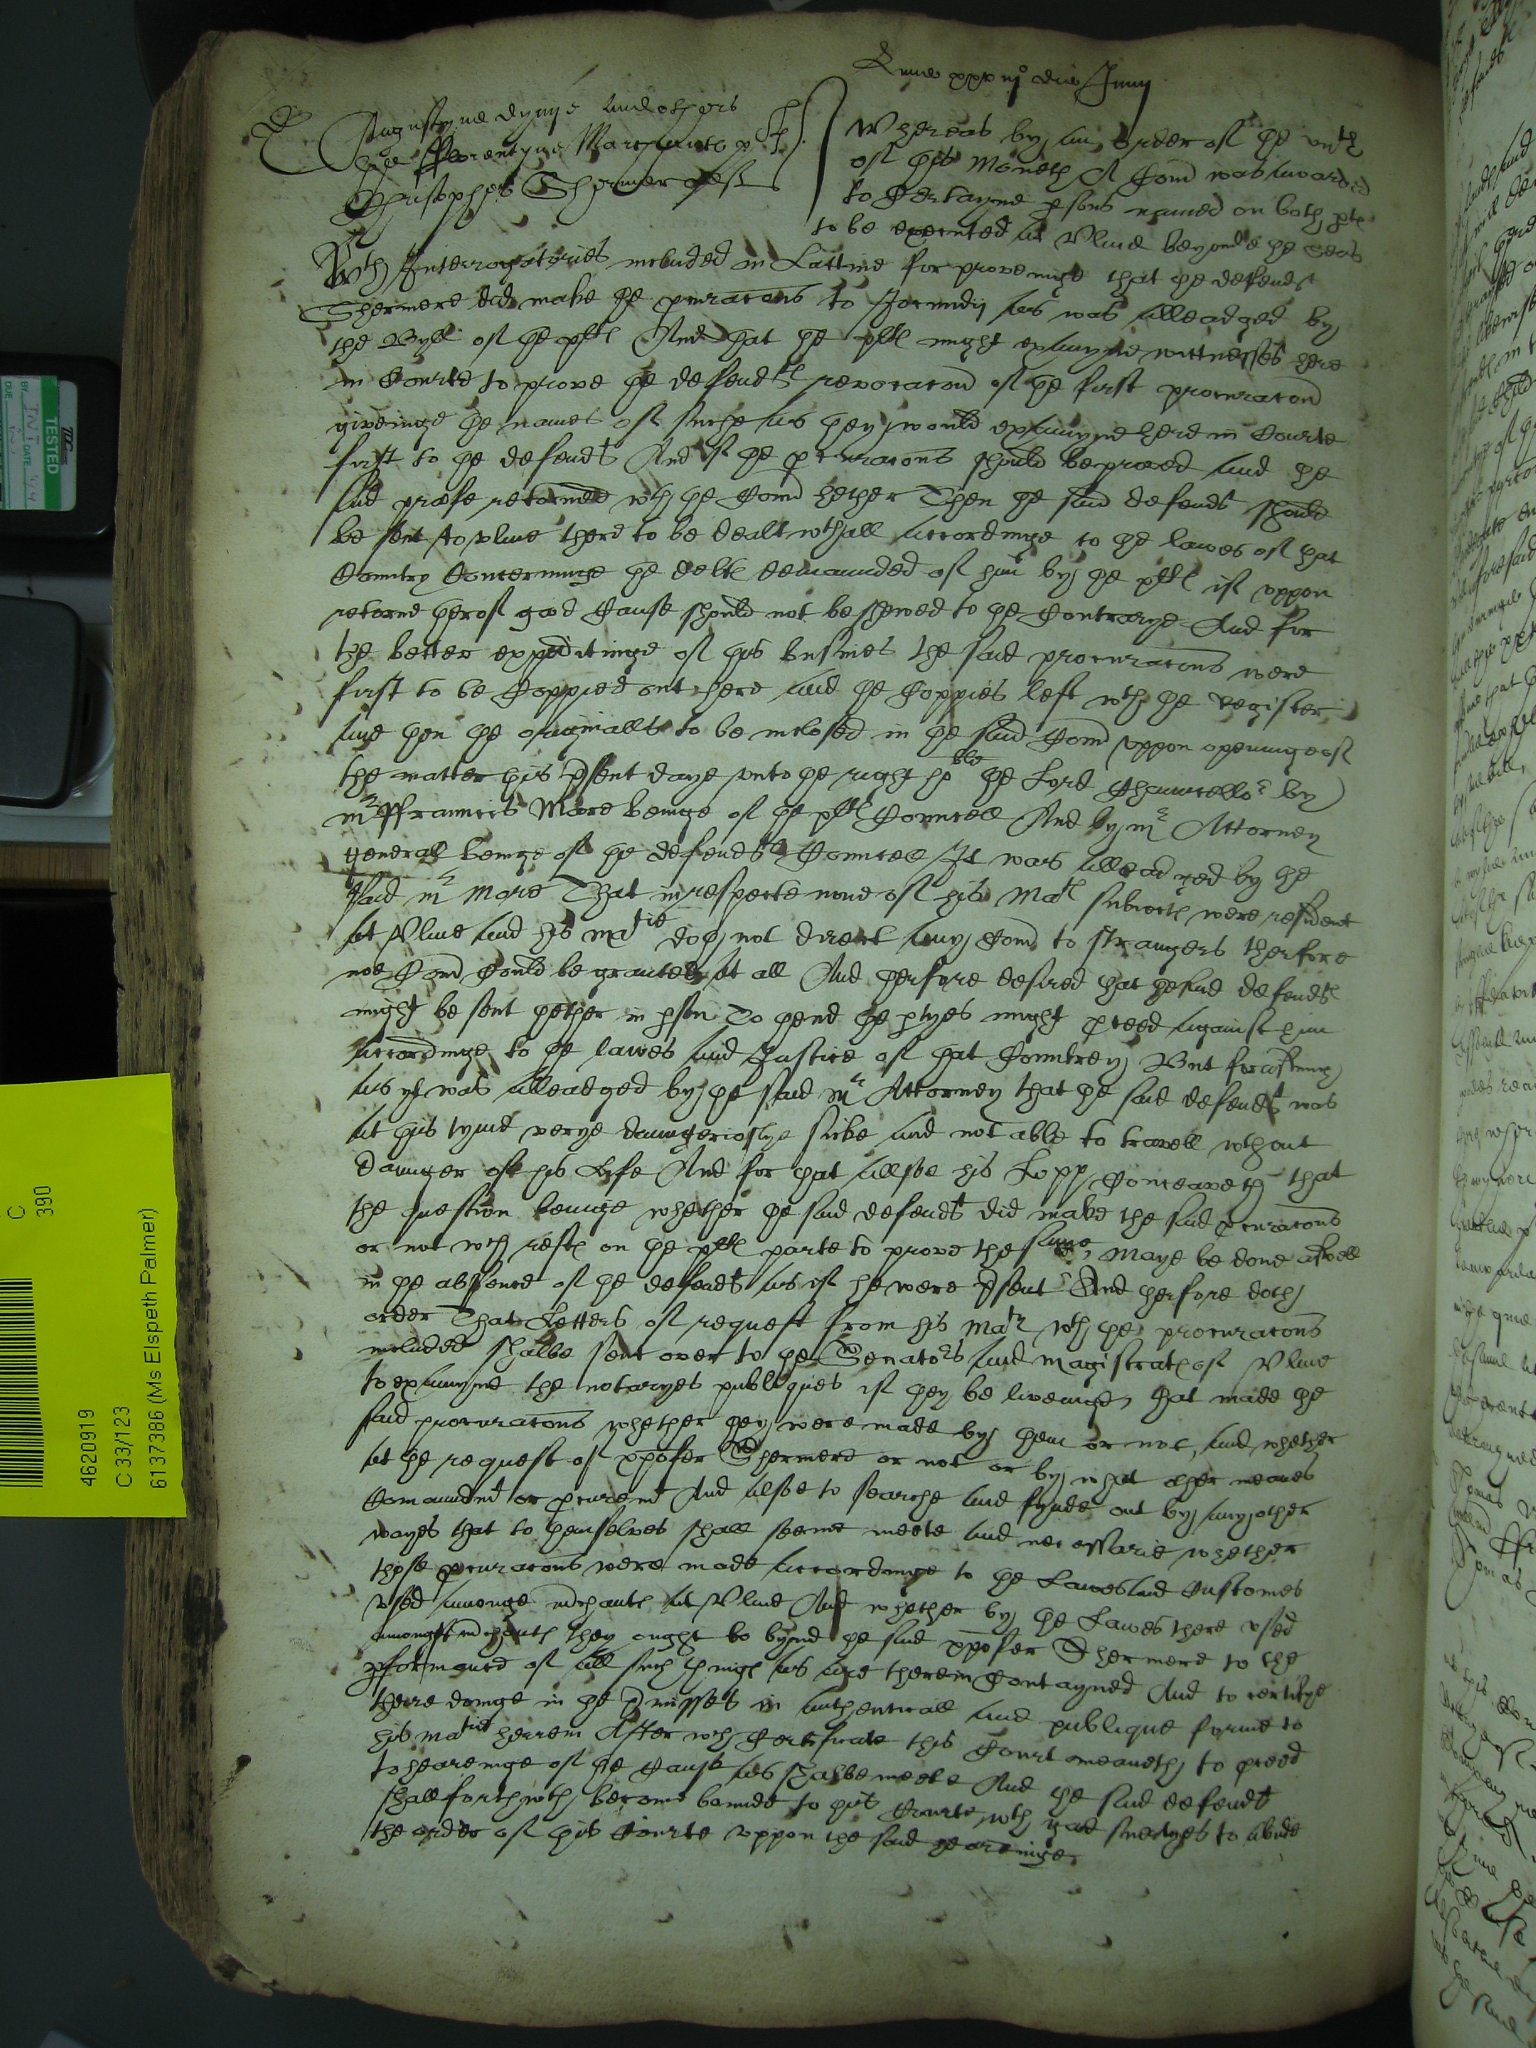 die Junij
Augustyne and others
fflorentyne Marchants pl
Christopher Shermer defend
Whereas by an order of the viith
of this Moneth A Com̃ was awarded
to Certayne psons named on both ptes
to be executed at Vlme beyonde the Seas
Wth Interrogatories included in Lattine for proveinge that the defendt
Shermere did make the pcuracons to Jocundij as was alleadged by
the Byll of the pltl And that the pltl might examyne wittnesses here
in Courte to prove the defendtl revocacon of the first procuracon
giveinge the names of suche as they would examyne here in Courte
first to the defendt And if the pcuracons should be proved and the
said profe retorned wth the Com̃ hether Then the said defendt should
be sent to Vlme there to be dealt wthall accordinge to the lawes of that
Countrey Concerninge the debtl demaunded of him by the pltl if vppon
retorne therof good Cause should not be shewed to the Contrarye And for
the better expeditinge of this busines the said procuracons were
first to be Coppied out here and the Coppies left wth the register
and then the originalls to be inclosed in the said Com̃ vppon openinge of
the matter this psent daye vnto the right hoble the Lord Chauncellor by
mr ffrauncis More beinge of the pltl Councell And by mr Attorney
generall beinge of the defendtl Councell It was alleadged by the
said mr More That in respecte none of his Matl subiectl were resident
at Vlme and his matie doth not direct any Com̃ to straungers therfore
noe Com̃ Could be graunted at all And therfore desired that the said defendtl
might be sent thether in pson To thend the ptyes might pceed against him
accordinge to the lawes and Justice of that Countrey But forasmuch
as yt was alleadged by the said mr Attorney that the said defendt was
at this tyme verye daungerioslye sicke and not able to travell wthout
daunger of his Life And for that allsoe his Lopp Conceaveth that
the question beinge whether the said defendt did make the said pcuracons
or not wch restl on the pltl parte to prove the same, maye be done aswell
in the absence of the defendt as if he were psent And therfore doth
order That Letters of request from his Matie wth the procuracons
included shalbe sent over to the Senators and magistratl of Vlme
to examyne the notaryes publiques if they be liveinge that made the
said procuracons whether they were made by them or not, and whether
at the request of xpofer Shermere or not or by what other meanes
Comaundmt or pcuremt And alsoe to searche and fynde out by any other
wayes that to themselves shall seeme meete and necessarie whether
those pcuracons were made accordinge to the Lawes and Customes
vsed amonge mchantl at Vlme And whether by the Lawes there vsed
amongst mchantl they ought to bynd the said xpofer Shermere to the
pformance of all such thingl as are therein Contayned And to certifye
theire doinge in the pmisses in authenticall and publique forme to
his matie herein After wch Certificate this Court meaneth to pceed
to hearinge of the Cause as shalbe meete And the said defendt
shall forthwth become bounde to this Courte wth suertyes to abide
the order of this Courte vppon the said hearinge.
TESTED
C
390
4620919
C 33/123
6137386 (Ms Elspeth Palmer)